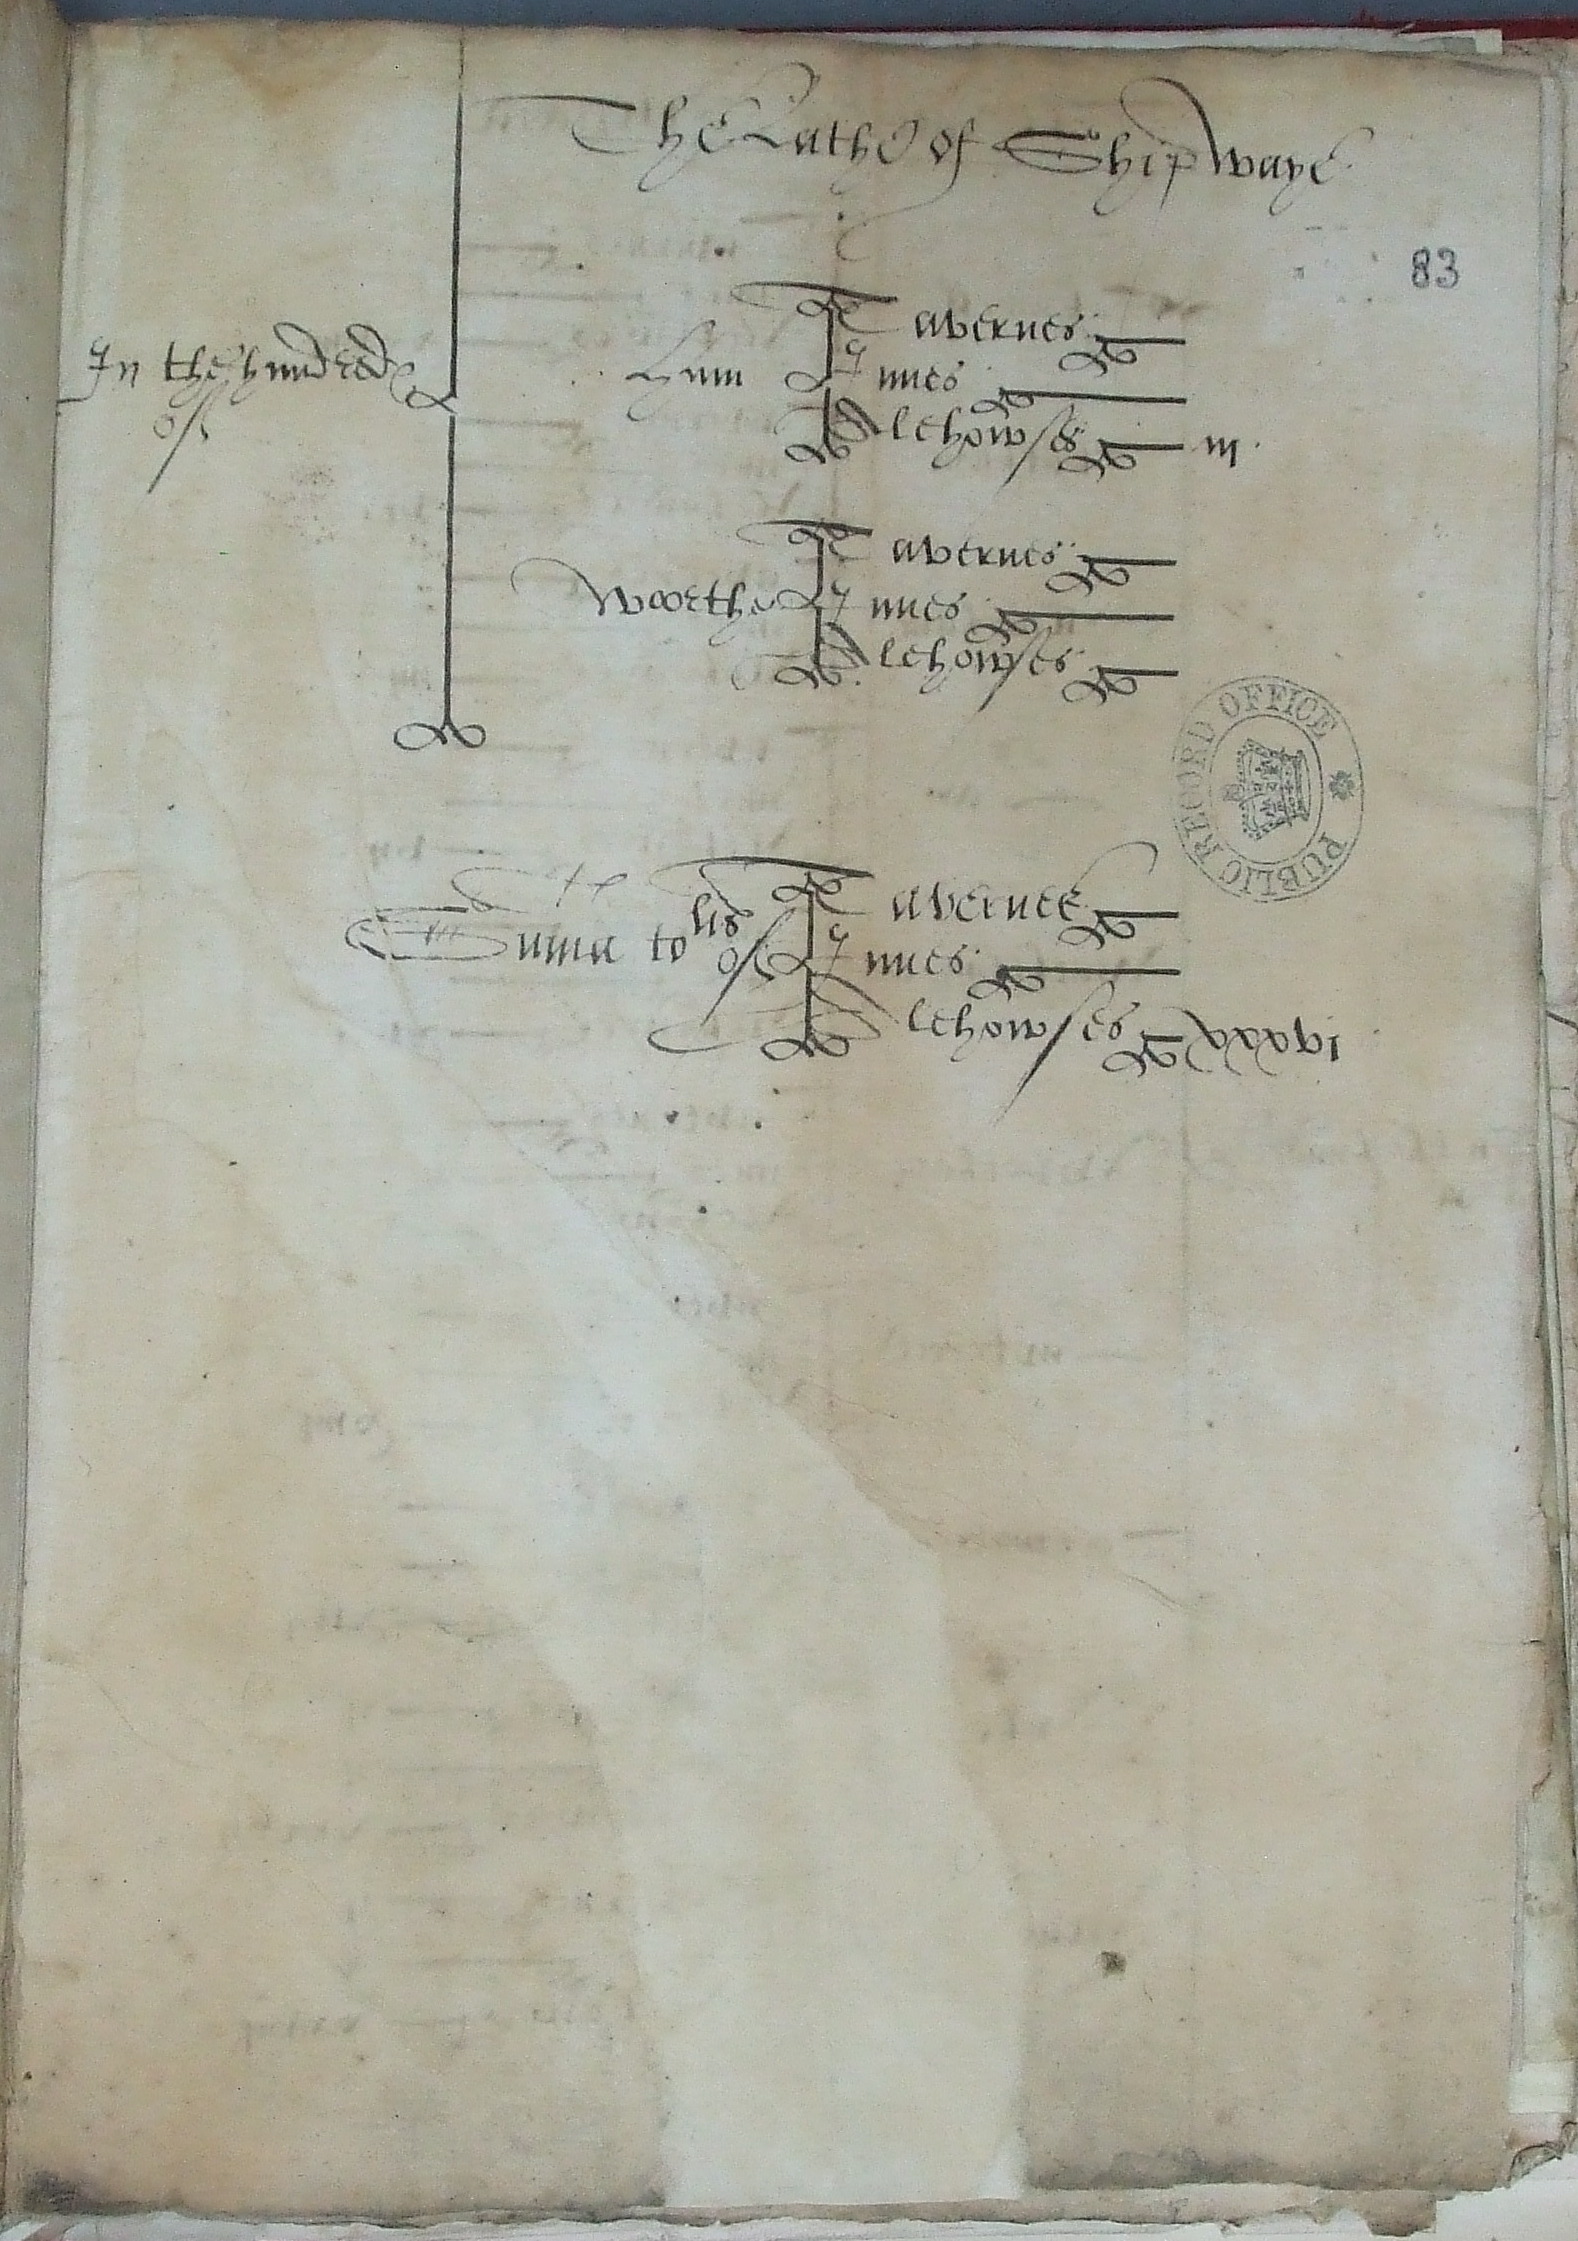 The Lathe of Shipwaye
83
In the hundred of
Ham
Tavernes
Innes
Alehowses iii
Woorthe
Tavernes
Innes
Alehowses
Suma to lis of
Tavernes
Innes
Alehowses xxxvi
PUBLIC RECORD OFFICE